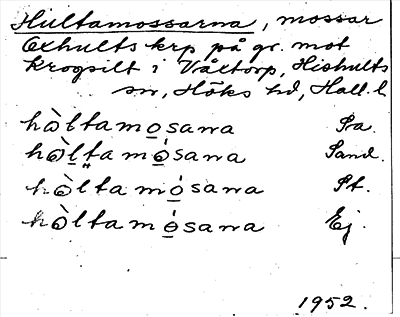 Hultamossarna, mossar
Oxhults krp på gr. mot
Krogsilt i Våxtorp, Hishults
sn, Höks hd, Hall. l.
hòltamo̲sana Pa.
hòl̲t̤amó̲sana Sand.
hòltamó̲sana St.
hòltamó̲sana Ej.
1952.